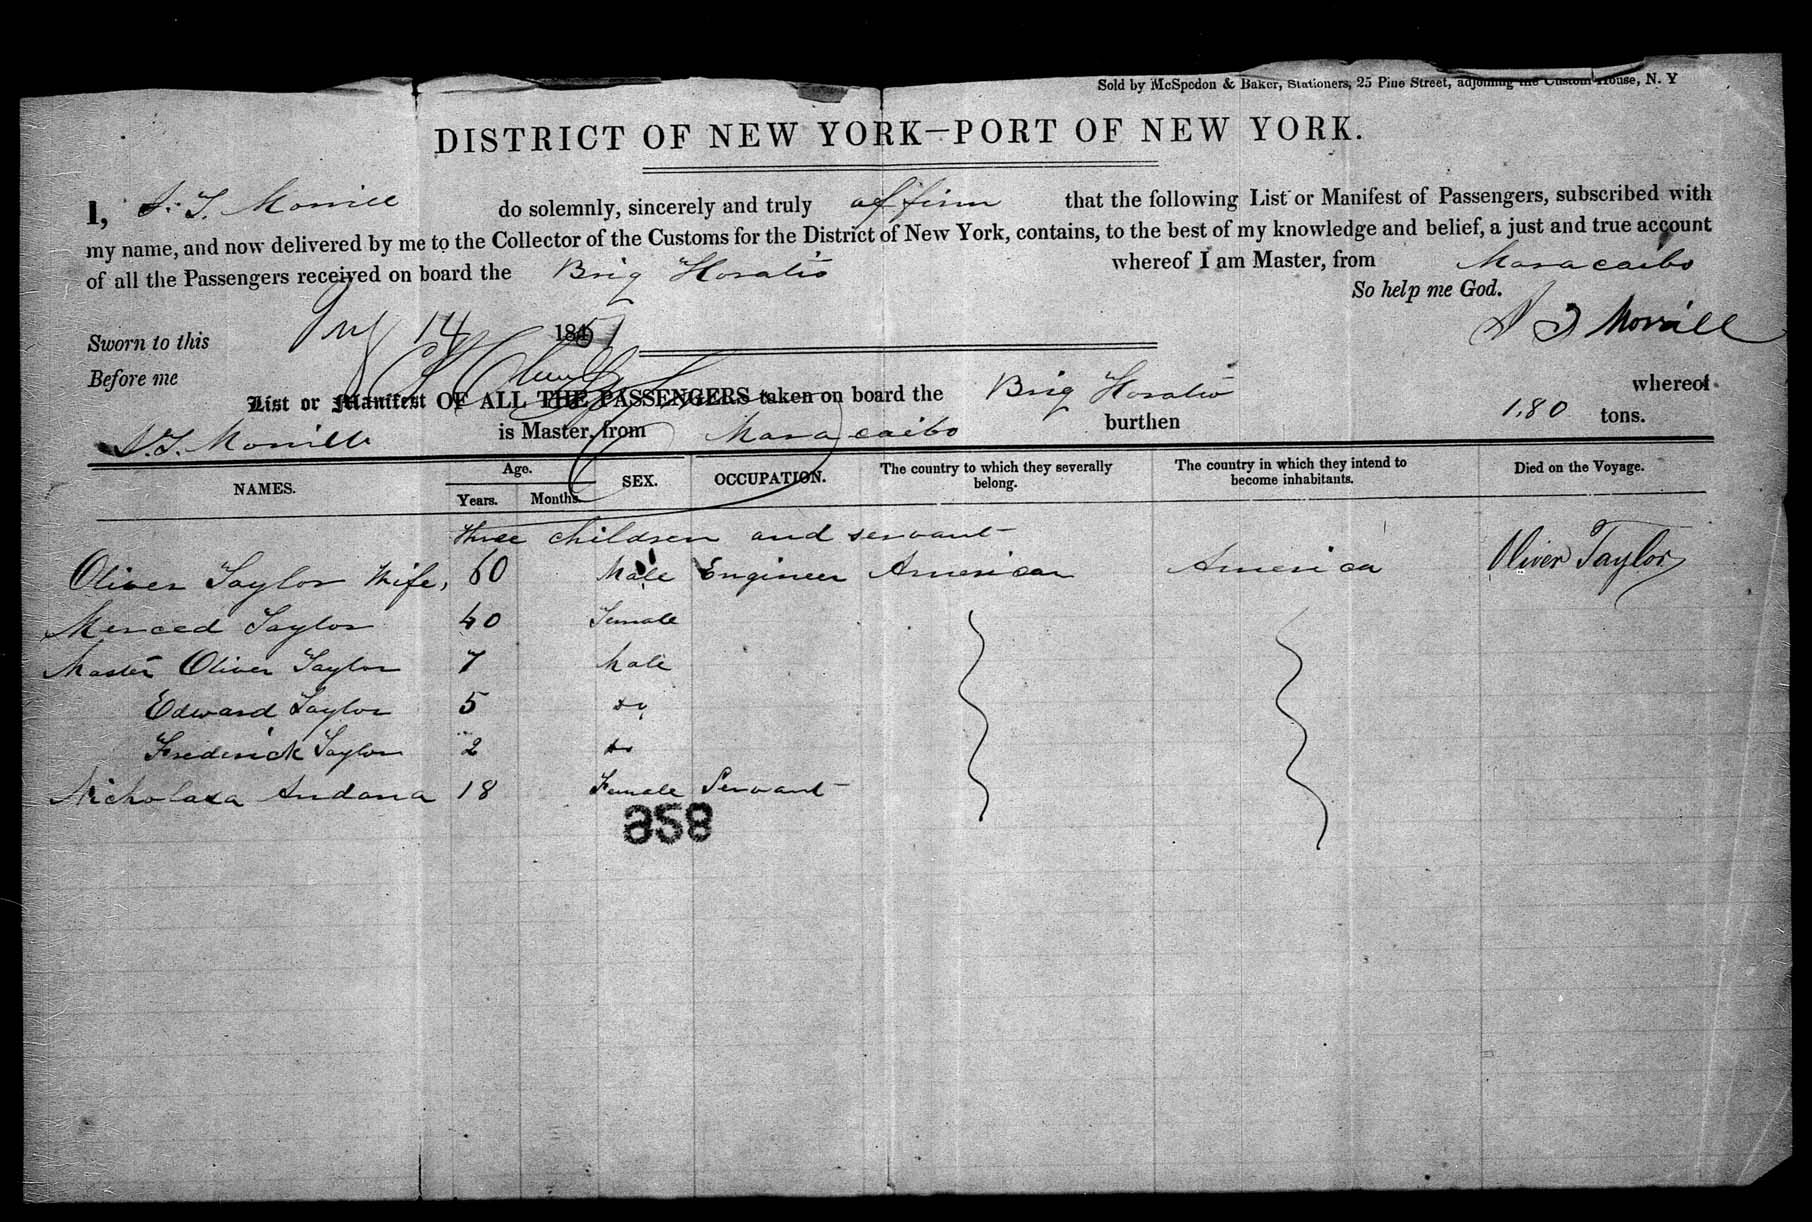 Sold by McSpedon & Baker, Stationers, 25 Pine Street, adjoining the Custom House, N. Y
DISTRICT OF NEW YORK—PORT OF NEW YORK.
I, S. T. Morrill do solemnly, sincerely and truly affirm that the following List or Manifest of Passengers, subscribed with
my name, and now delivered by me to the Collector of the Customs for the District of New York, contains, to the best of my knowledge and belief, a just and true account
of all the Passengers received on board the Brig Horatio whereof I am Master, from Maracaibo
So help me God.
Sworn to this 14 185
S T Morrill
Before me
List or Manifest OF ALL THE PASSENGERS taken on board the Brig Horatio whereof
S. T. Morrill is Master, from Maracaibo burthen 180 tons.
NAMES. Age. Years. Months. SEX. OCCUPATION. The country to which they severally belong. The country in which they intend to become inhabitants. Died on the Voyage.
three children and servant
Oliver Taylor Wife, 60 Male Engineer American America Oliver Taylor
Merced Taylor 40 Female
Master Oliver Taylor 7 Male
Edward Taylor 5 do
Frederick Taylor 2 do
Nicholasa Andona 18 Female Servant
858